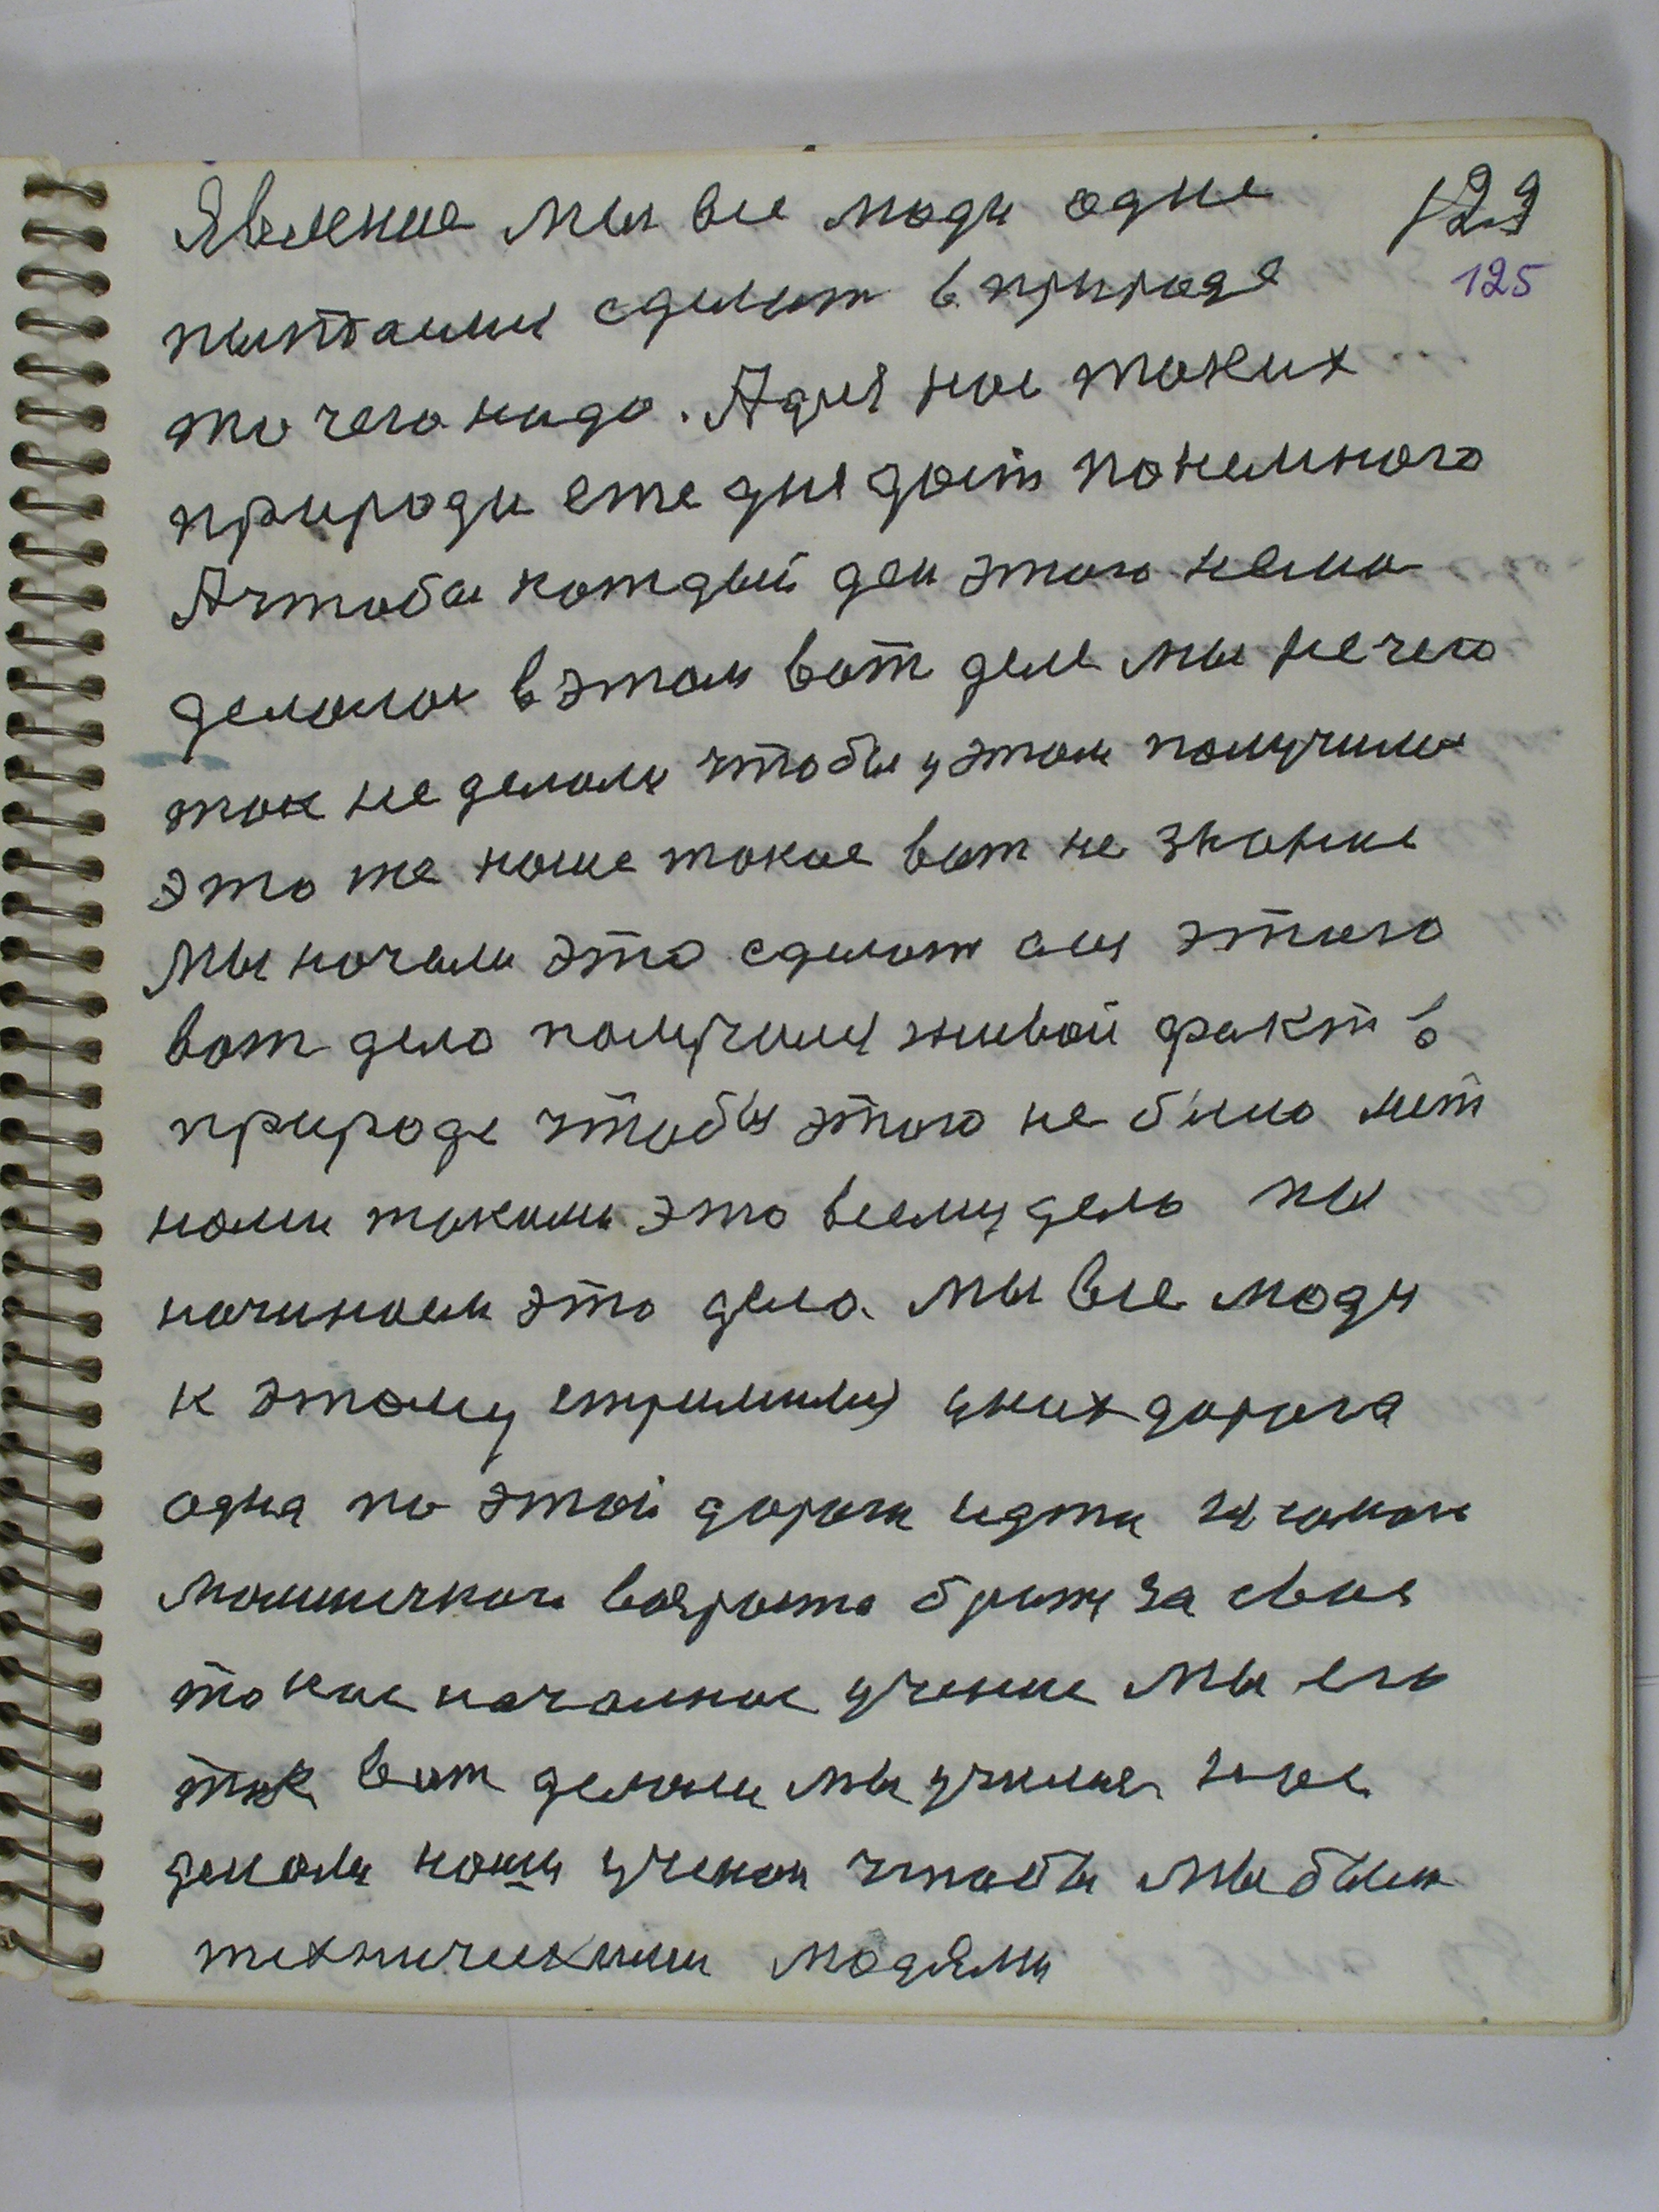 Явление мы все люди одне 123
125
пытаими сделат в природе
то чего надо. А для нас таких
природи еже дня даёт понемного
А чтобы котдый ден этого немо
делалос в этом вот деле мы нечего
так не делали чтобы у этом получилос
это же наше такое вот не знание
мы начали это сделат с этого
вот дело получили живой факт в
природе чтобы этого не было
нами такими это всему дело мы
начинаем это дело. мы все люди
к этому стримилис у них дорога
одна по этой дороги идти
возроста брать за своё
такое началное учение мы его
так вот делали мы училис
делали наши учении чтобы мы были
техническими людями